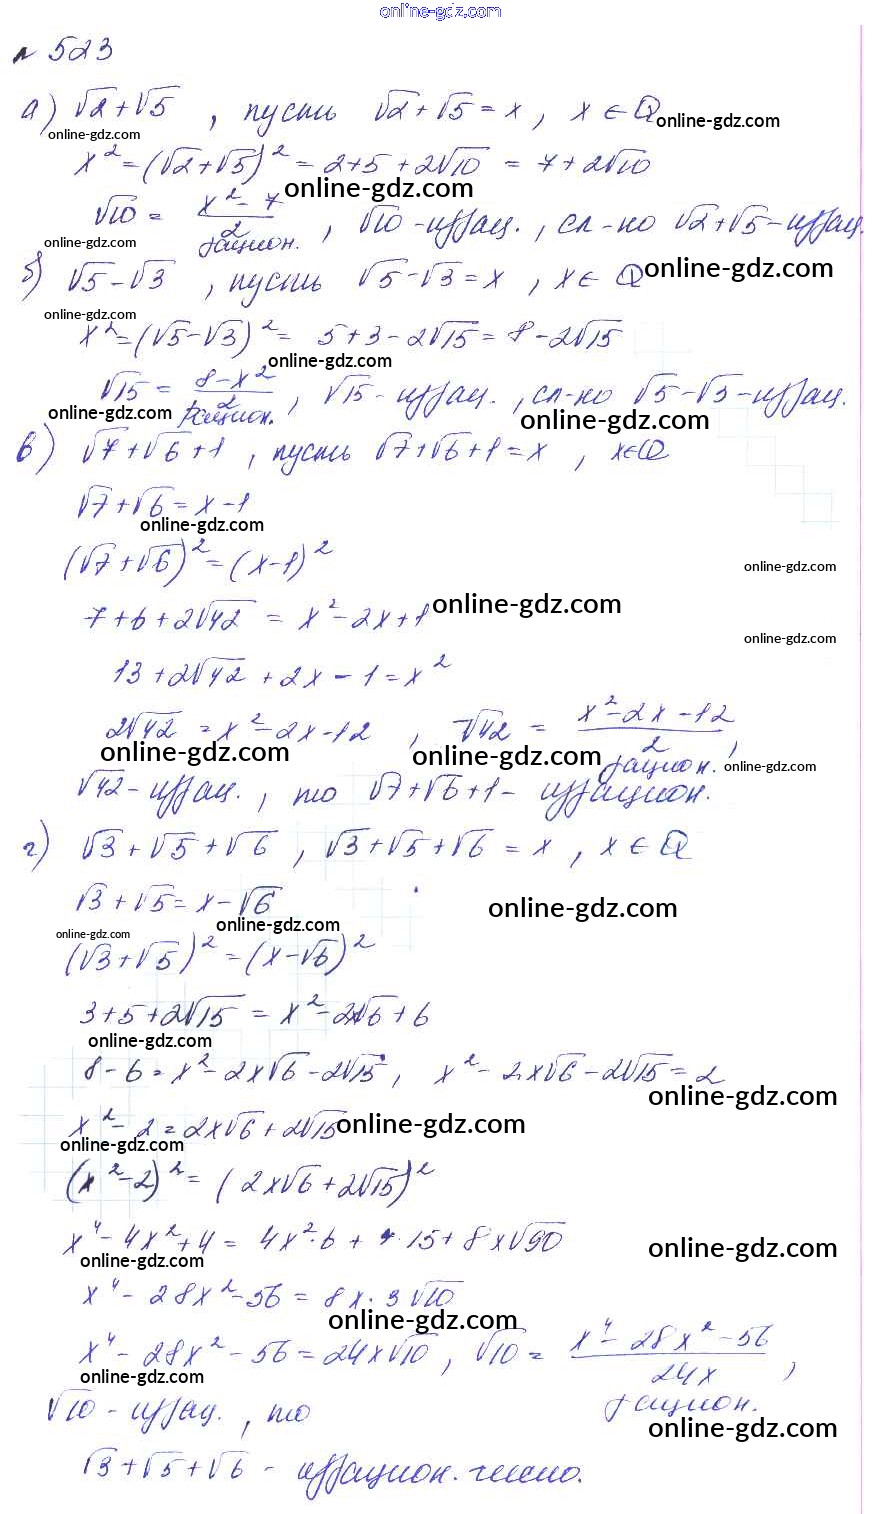 online-gdz.com
№ 523
а) √2+√5 , пусть √2+√5 = x, x ∈ Q online-gdz.com
online-gdz.com
x² = (√2+√5)² = 2+5+2√10 = 7+2√10
online-gdz.com
√10 = (x²-7)/2 рацион. , √10 - иррац. , сл-но √2+√5 - иррац.
online-gdz.com
б) √5-√3 , пусть √5-√3 = x , x ∈ Q online-gdz.com
online-gdz.com
x² = (√5-√3)² = 5+3-2√15 = 8-2√15
online-gdz.com
√15 = (8-x²)/2 рацион. , √15 - иррац. , сл-но √5-√3 - иррац.
online-gdz.com online-gdz.com
в) √7+√6+1 , пусть √7+√6+1 = x , x∈Q
√7+√6 = x-1
online-gdz.com
(√7+√6)² = (x-1)²
online-gdz.com
7+6+2√42 = x²-2x+1 online-gdz.com
online-gdz.com
13+2√42+2x-1 = x²
2√42 = x²-2x-12 , √42 = (x²-2x-12)/2 рацион. ,
online-gdz.com online-gdz.com online-gdz.com
√42 - иррац. , то √7+√6+1 - иррацион.
г) √3+√5+√6 , √3+√5+√6 = x , x ∈ Q
√3+√5 = x-√6
online-gdz.com online-gdz.com
online-gdz.com
(√3+√5)² = (x-√6)²
3+5+2√15 = x²-2x√6+6
online-gdz.com
8-6 = x²-2x√6-2√15 , x²-2x√6-2√15 = 2
online-gdz.com
x²-2 = 2x√6+2√15 online-gdz.com
online-gdz.com
(x²-2)² = (2x√6+2√15)²
x⁴-4x²+4 = 4x²·6+4·15+8x√90 online-gdz.com
online-gdz.com
x⁴-28x²-56 = 8x·3√10
online-gdz.com
x⁴-28x²-56 = 24x√10 , √10 = (x⁴-28x²-56)/24x рацион. ,
online-gdz.com
√10 - иррац. , то
online-gdz.com
√3+√5+√6 - иррацион. число.